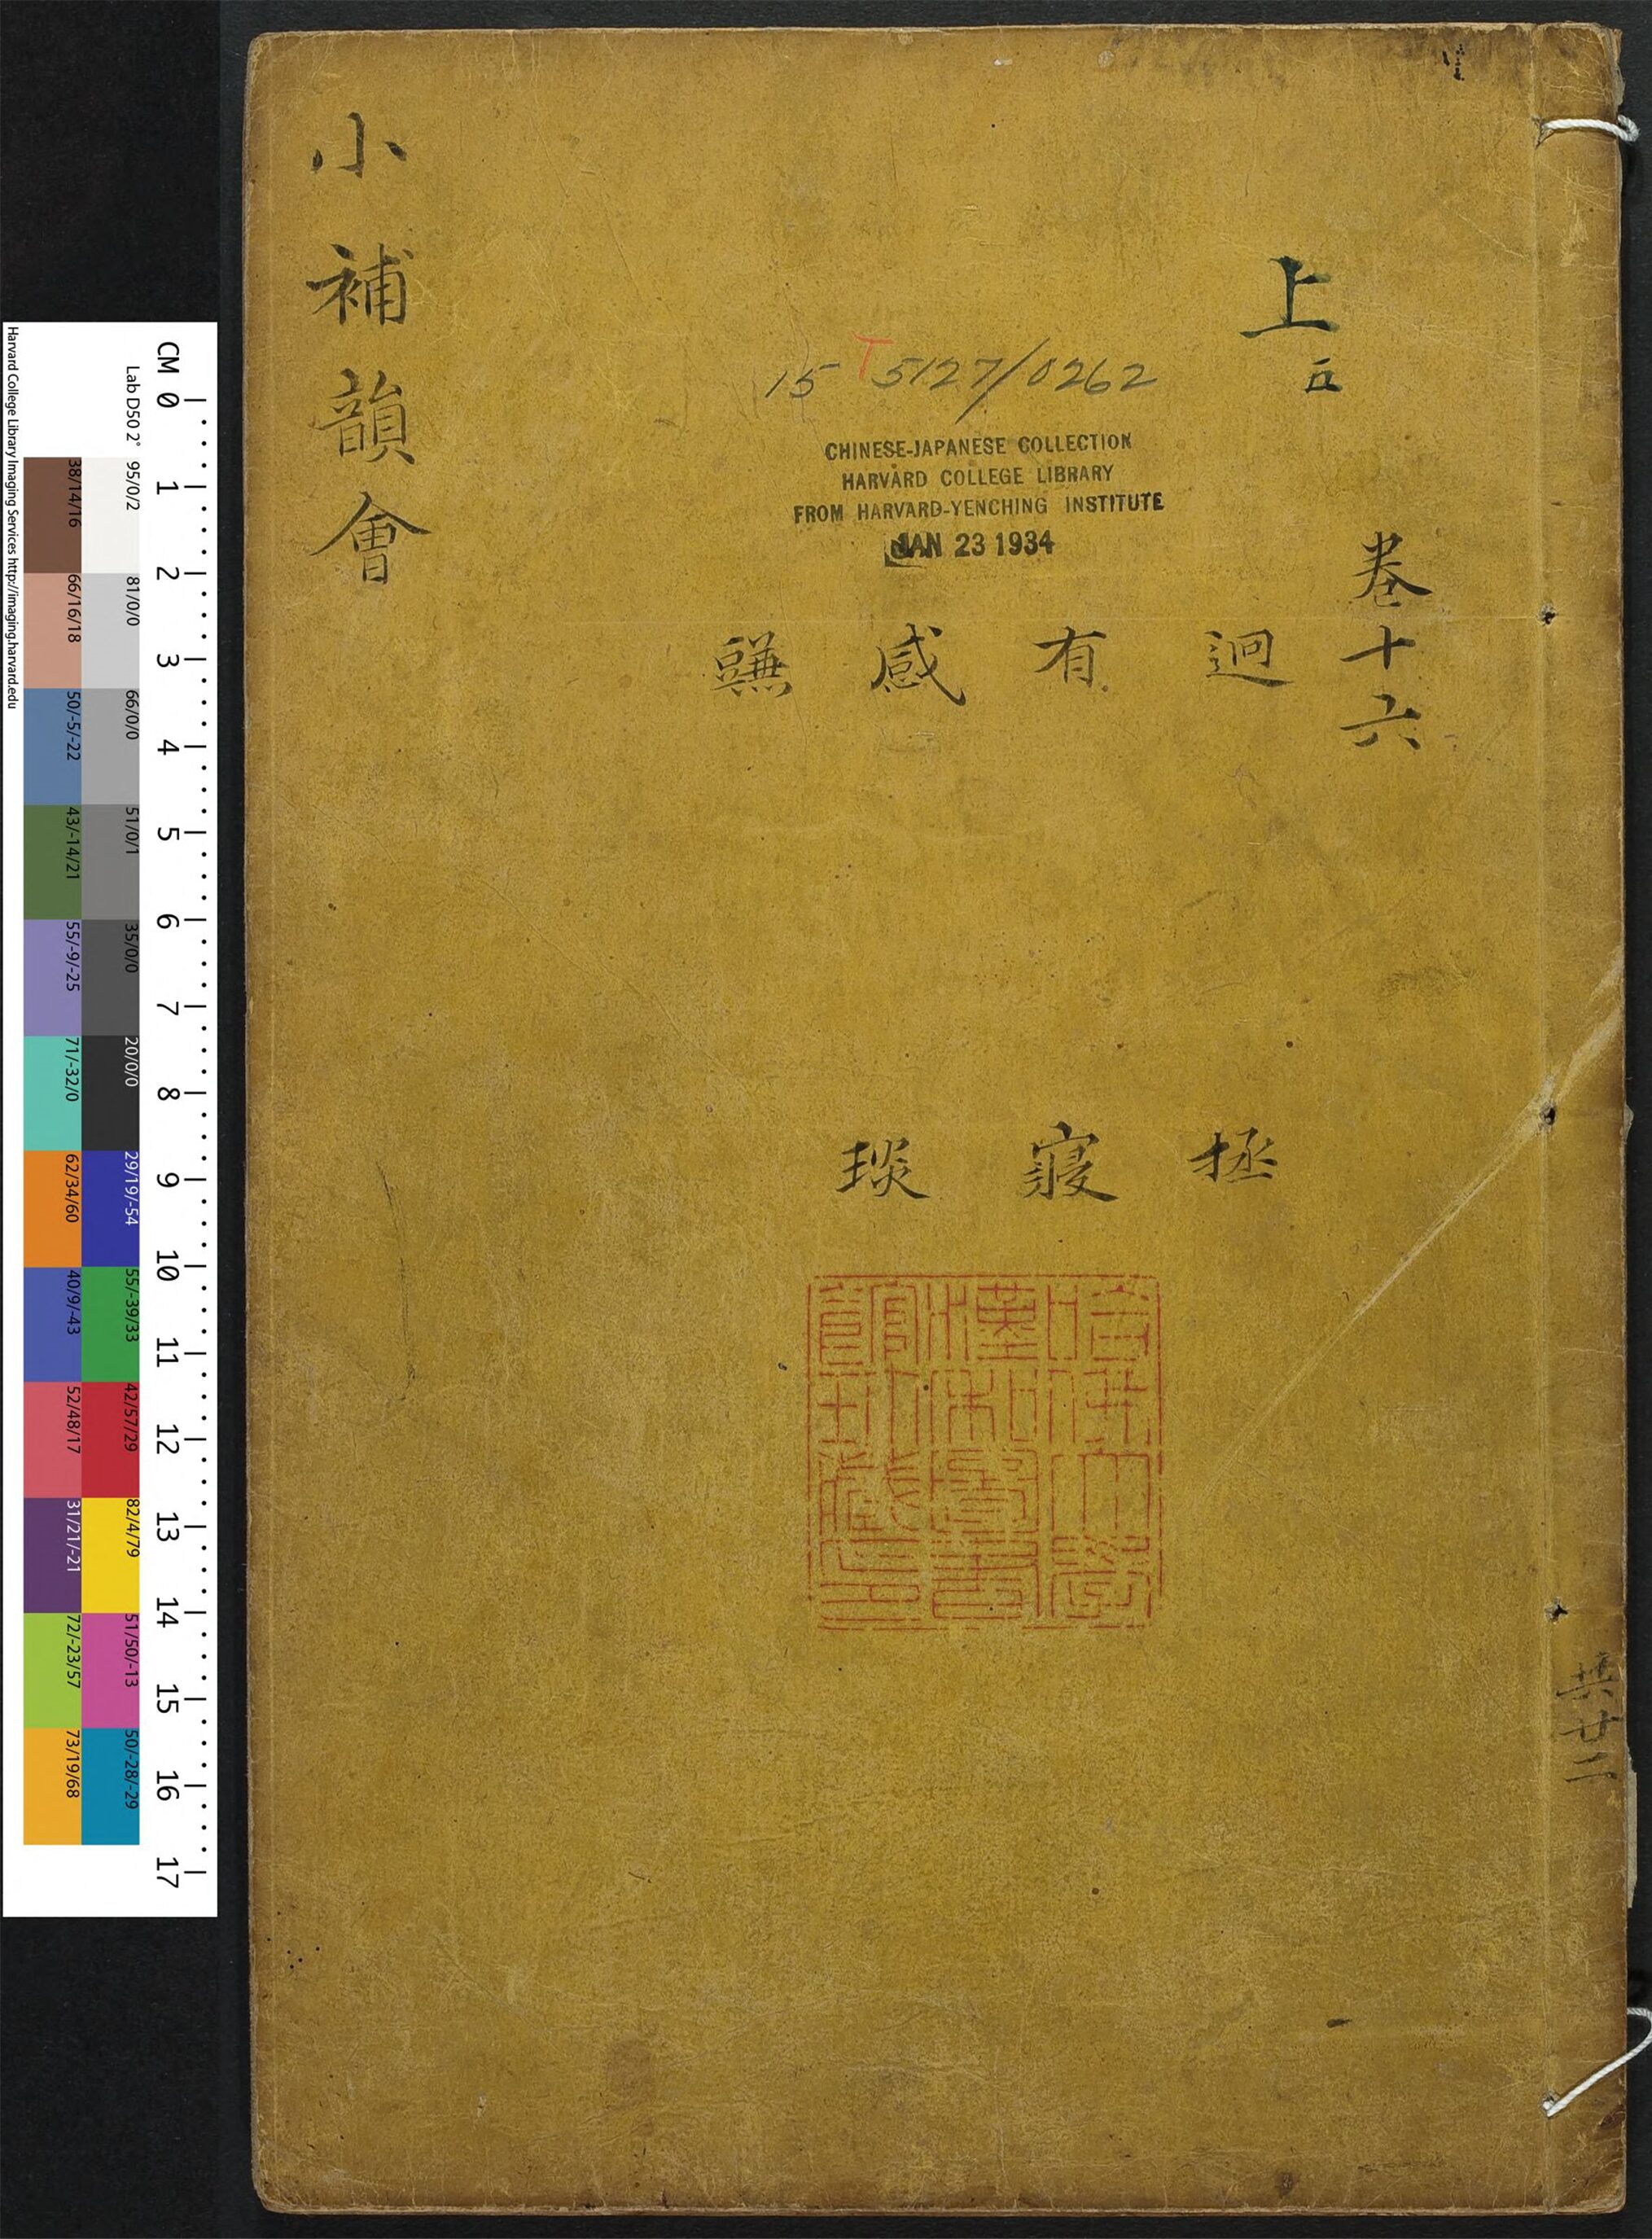 共廿二
上五
卷十六
逈 有 感 豏
拯 寢 琰
15 T5127/0262
CHINESE-JAPANESE COLLECTION
HARVARD COLLEGE LIBRARY
FROM HARVARD-YENCHING INSTITUTE
JAN 23 1934
哈佛大學
漢和圖書
館珍藏印
小補韻會
CM 0 1 2 3 4 5 6 7 8 9 10 11 12 13 14 15 16 17
Lab D50 2° 95/0/2 81/0/0 66/0/0 51/0/1 35/0/0 20/0/0 29/19/-54 55/-39/33 42/57/29 82/4/79 51/50/-13 50/-28/-29
38/14/16 66/16/18 50/-5/-22 43/-14/21 55/-9/-25 71/-32/0 62/34/60 40/9/-43 52/48/17 31/21/-21 72/-23/57 73/19/68
Harvard College Library Imaging Services http://imaging.harvard.edu